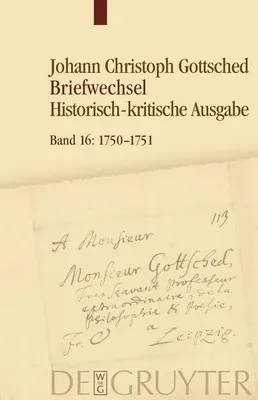 Johann Christoph Gottsched
Briefwechsel
Historisch-kritische Ausgabe
Band 16: 1750–1751
113
A Monsieur
Monsieur Gottsched,
Tres Savant Professeur
extraordinaire, de la
Philosophie & Poesie,
Fr. à Leipzig.
W
DE
G
DE GRUYTER